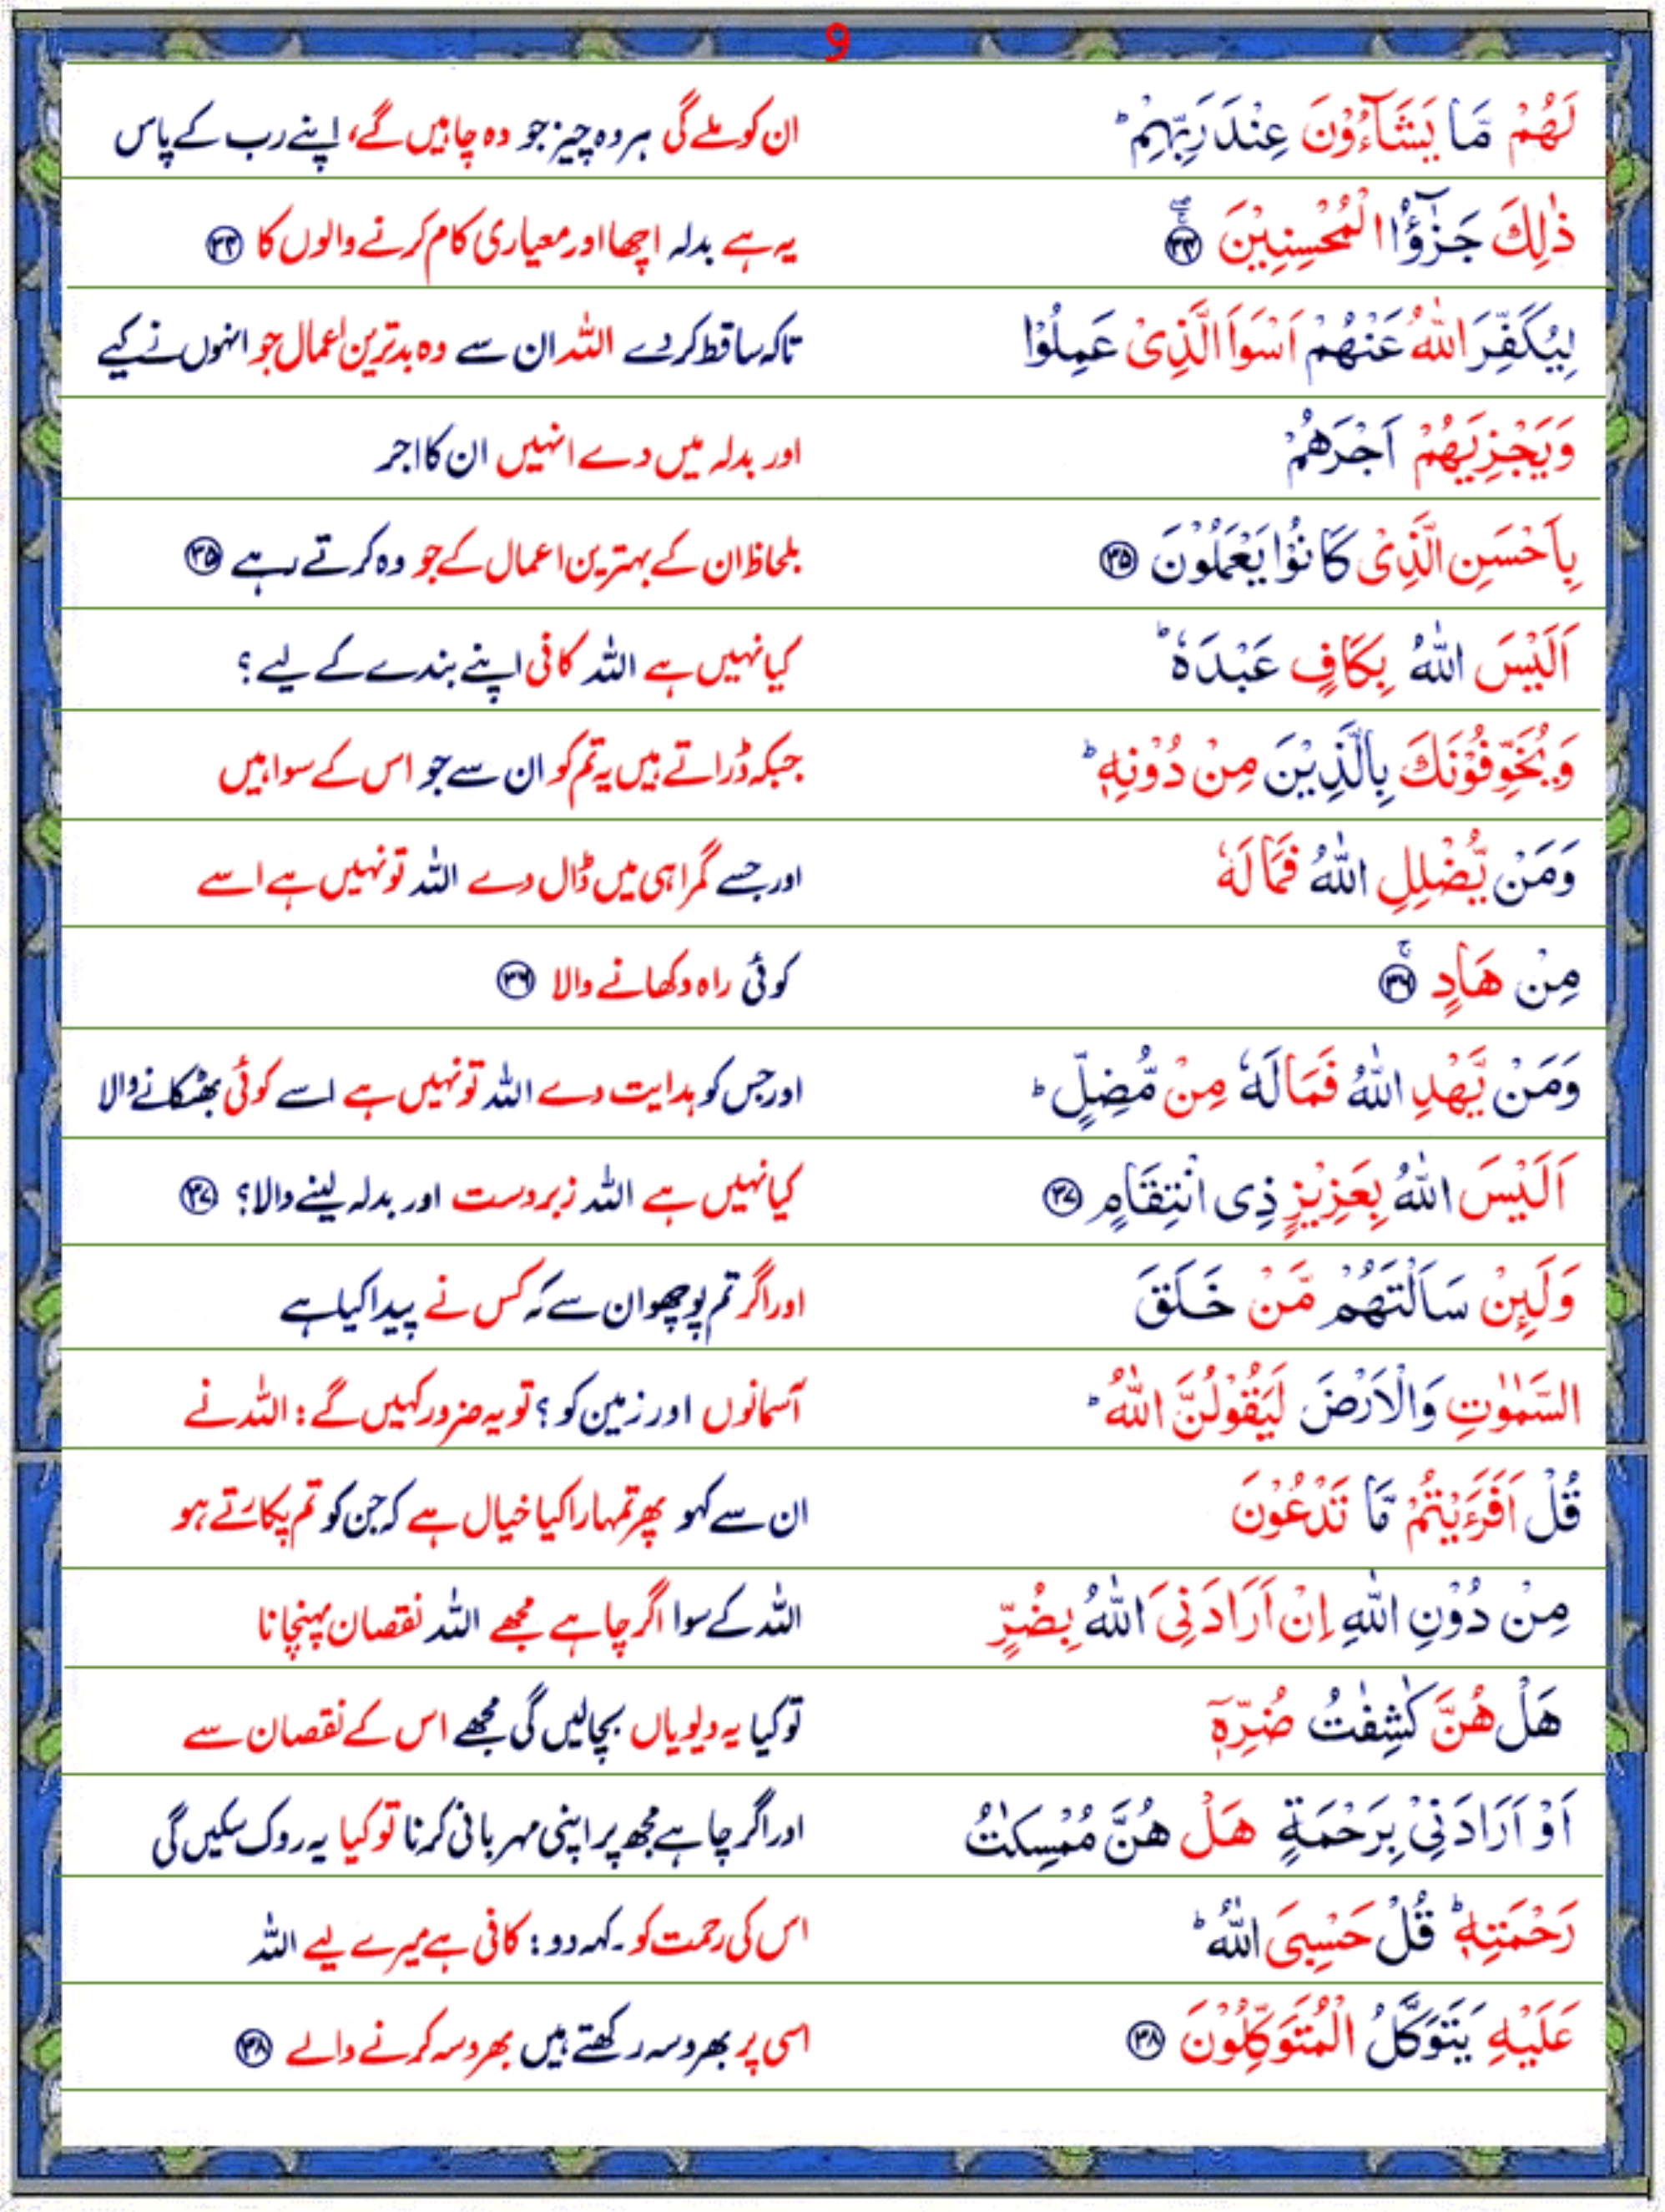 9
لَهُمْ مَّا يَشَآءُوْنَ عِنْدَ رَبِّهِمْ ؕ ان کو ملے گی ہر وہ چیز جو وہ چاہیں گے، اپنے رب کے پاس
ذٰلِكَ جَزٰٓؤُا الْمُحْسِنِيْنَ ۚۖ ﴿۳۴﴾ یہ ہے بدلہ اچھا اور معیاری کام کرنے والوں کا ﴿۳۴﴾
لِيُكَفِّرَ اللّٰهُ عَنْهُمْ اَسْوَاَ الَّذِىْ عَمِلُوْا تاکہ ساقط کر دے اللہ ان سے وہ بدترین اعمال جو انہوں نے کیے
وَيَجْزِيَهُمْ اَجْرَهُمْ اور بدلہ میں دے انہیں ان کا اجر
بِاَحْسَنِ الَّذِىْ كَانُوْا يَعْمَلُوْنَ ﴿۳۵﴾ بلحاظ ان کے بہترین اعمال کے جو وہ کرتے رہے ﴿۳۵﴾
اَلَيْسَ اللّٰهُ بِكَافٍ عَبْدَهٗ ؕ کیا نہیں ہے اللہ کافی اپنے بندے کے لیے ؟
وَيُخَوِّفُوْنَكَ بِالَّذِيْنَ مِنْ دُوْنِهٖ ؕ جبکہ ڈراتے ہیں یہ تم کو ان سے جو اس کے سوا ہیں
وَمَنْ يُّضْلِلِ اللّٰهُ فَمَا لَهٗ اور جسے گمراہی میں ڈال دے اللہ تو نہیں ہے اسے
مِنْ هَادٍ ۚ ﴿۳۶﴾ کوئی راہ دکھانے والا ﴿۳۶﴾
وَمَنْ يَّهْدِ اللّٰهُ فَمَا لَهٗ مِنْ مُّضِلٍّ ؕ اور جس کو ہدایت دے اللہ تو نہیں ہے اسے کوئی بھٹکانے والا
اَلَيْسَ اللّٰهُ بِعَزِيْزٍ ذِى انْتِقَامٍ ﴿۳۷﴾ کیا نہیں ہے اللہ زبردست اور بدلہ لینے والا؟ ﴿۳۷﴾
وَلَئِنْ سَاَلْتَهُمْ مَّنْ خَلَقَ اور اگر تم پوچھو ان سے کہ کس نے پیدا کیا ہے
السَّمٰوٰتِ وَالْاَرْضَ لَيَقُوْلُنَّ اللّٰهُ ؕ آسمانوں اور زمین کو ؟ تو یہ ضرور کہیں گے : اللہ نے
قُلْ اَفَرَءَيْتُمْ مَّا تَدْعُوْنَ ان سے کہو پھر تمہارا کیا خیال ہے کہ جن کو تم پکارتے ہو
مِنْ دُوْنِ اللّٰهِ اِنْ اَرَادَنِىَ اللّٰهُ بِضُرٍّ اللہ کے سوا اگر چاہے مجھے اللہ نقصان پہنچانا
هَلْ هُنَّ كٰشِفٰتُ ضُرِّهٖۤ تو کیا یہ دیویاں بچالیں گی مجھے اس کے نقصان سے
اَوْ اَرَادَنِىْ بِرَحْمَةٍ هَلْ هُنَّ مُمْسِكٰتُ اور اگر چاہے مجھ پر اپنی مہربانی کرنا تو کیا یہ روک سکیں گی
رَحْمَتِهٖ ؕ قُلْ حَسْبِىَ اللّٰهُ ؕ اس کی رحمت کو۔ کہہ دو : کافی ہے میرے لیے اللہ
عَلَيْهِ يَتَوَكَّلُ الْمُتَوَكِّلُوْنَ ﴿۳۸﴾ اسی پر بھروسہ رکھتے ہیں بھروسہ کرنے والے ﴿۳۸﴾